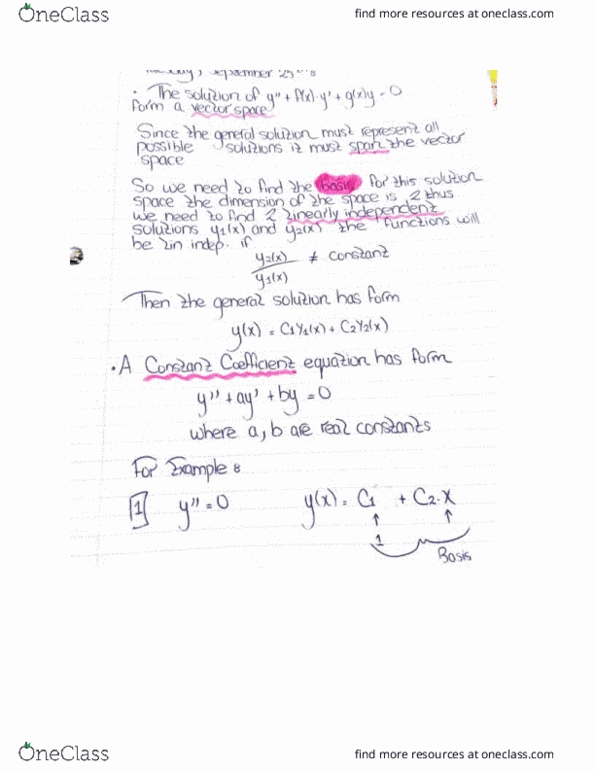 OneClass
find more resources at oneclass.com
September 25
• The solution of y'' + f(x)·y' + g(x)y = 0
form a vector space
Since the general solution must represent all
possible solutions it must span the vector
space
So we need to find the basis for this solution
space the dimension of the space is 2 thus
we need to find 2 linearly independent
solutions y1(x) and y2(x) the functions will
be lin indep. if
y2(x)
≠ constant
y1(x)
Then the general solution has form
y(x) = C1Y1(x) + C2Y2(x)
• A Constant Coefficient equation has form
y'' + ay' + by = 0
where a, b are real constants
For Example :
1 y'' = 0 y(x) = C1 + C2·x
↑ ↑
1
Basis
OneClass
find more resources at oneclass.com